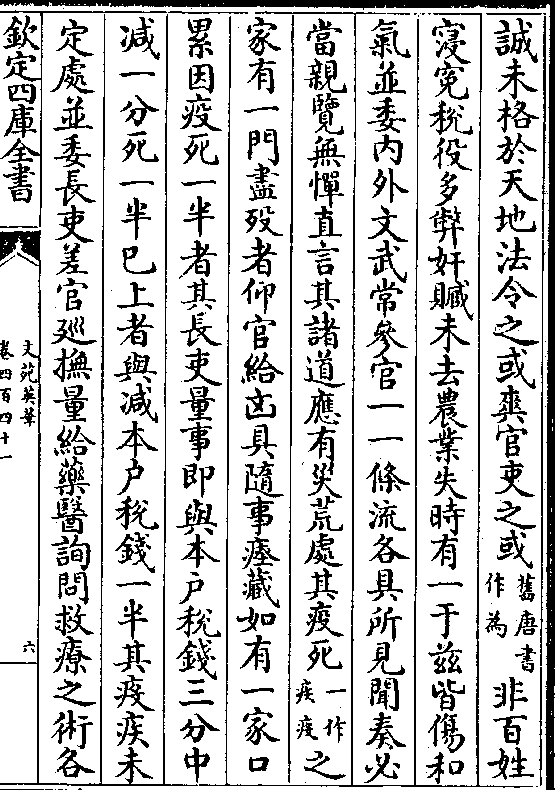 誠未格於天地法令之或爽官吏之或舊唐書作為非百姓
寖寃稅役多弊奸贓未去農業失時有一于兹皆傷和
氣並委内外文武常參官一一條流各具所見聞奏必
當親覽無憚直言其諸道應有災荒處其疫死一作疾疫之
家有一門盡殁者仰官給凶具隨事瘞藏如有一家口
累因疫死一半者其長吏量事即與本户稅錢三分中
减一分死一半已上者與减本户稅錢一半其疫疾未
定處並委長吏差官廵撫量給藥醫詢問救療之術各
欽定四庫全書
文苑英華
卷四百四十一
六